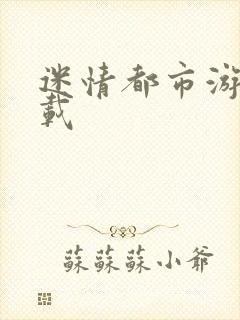 迷情都市游
载
蘇蘇蘇小爺